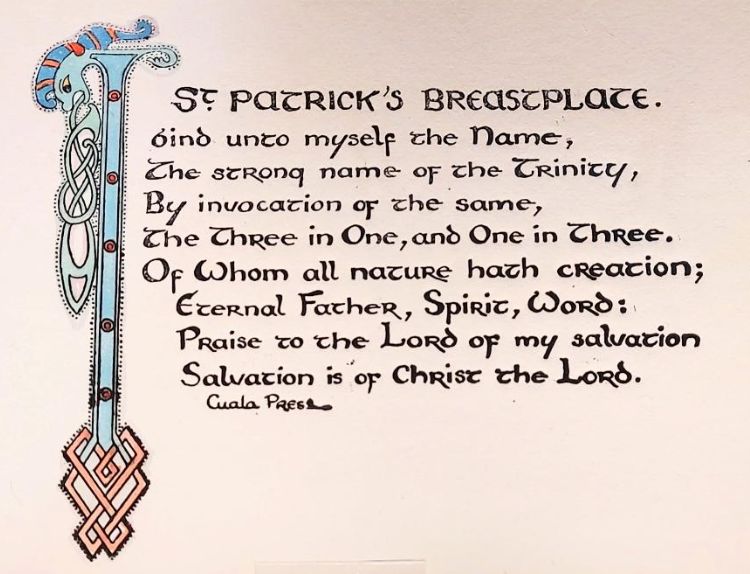 ST. PATRICK'S BREASTPLATE.
I bind unto myself the Name,
The strong name of the Trinity,
By invocation of the same,
The Three in One, and One in Three.
Of Whom all nature hath creation;
Eternal Father, Spirit, Word:
Praise to the Lord of my salvation
Salvation is of Christ the Lord.
Cuala Press